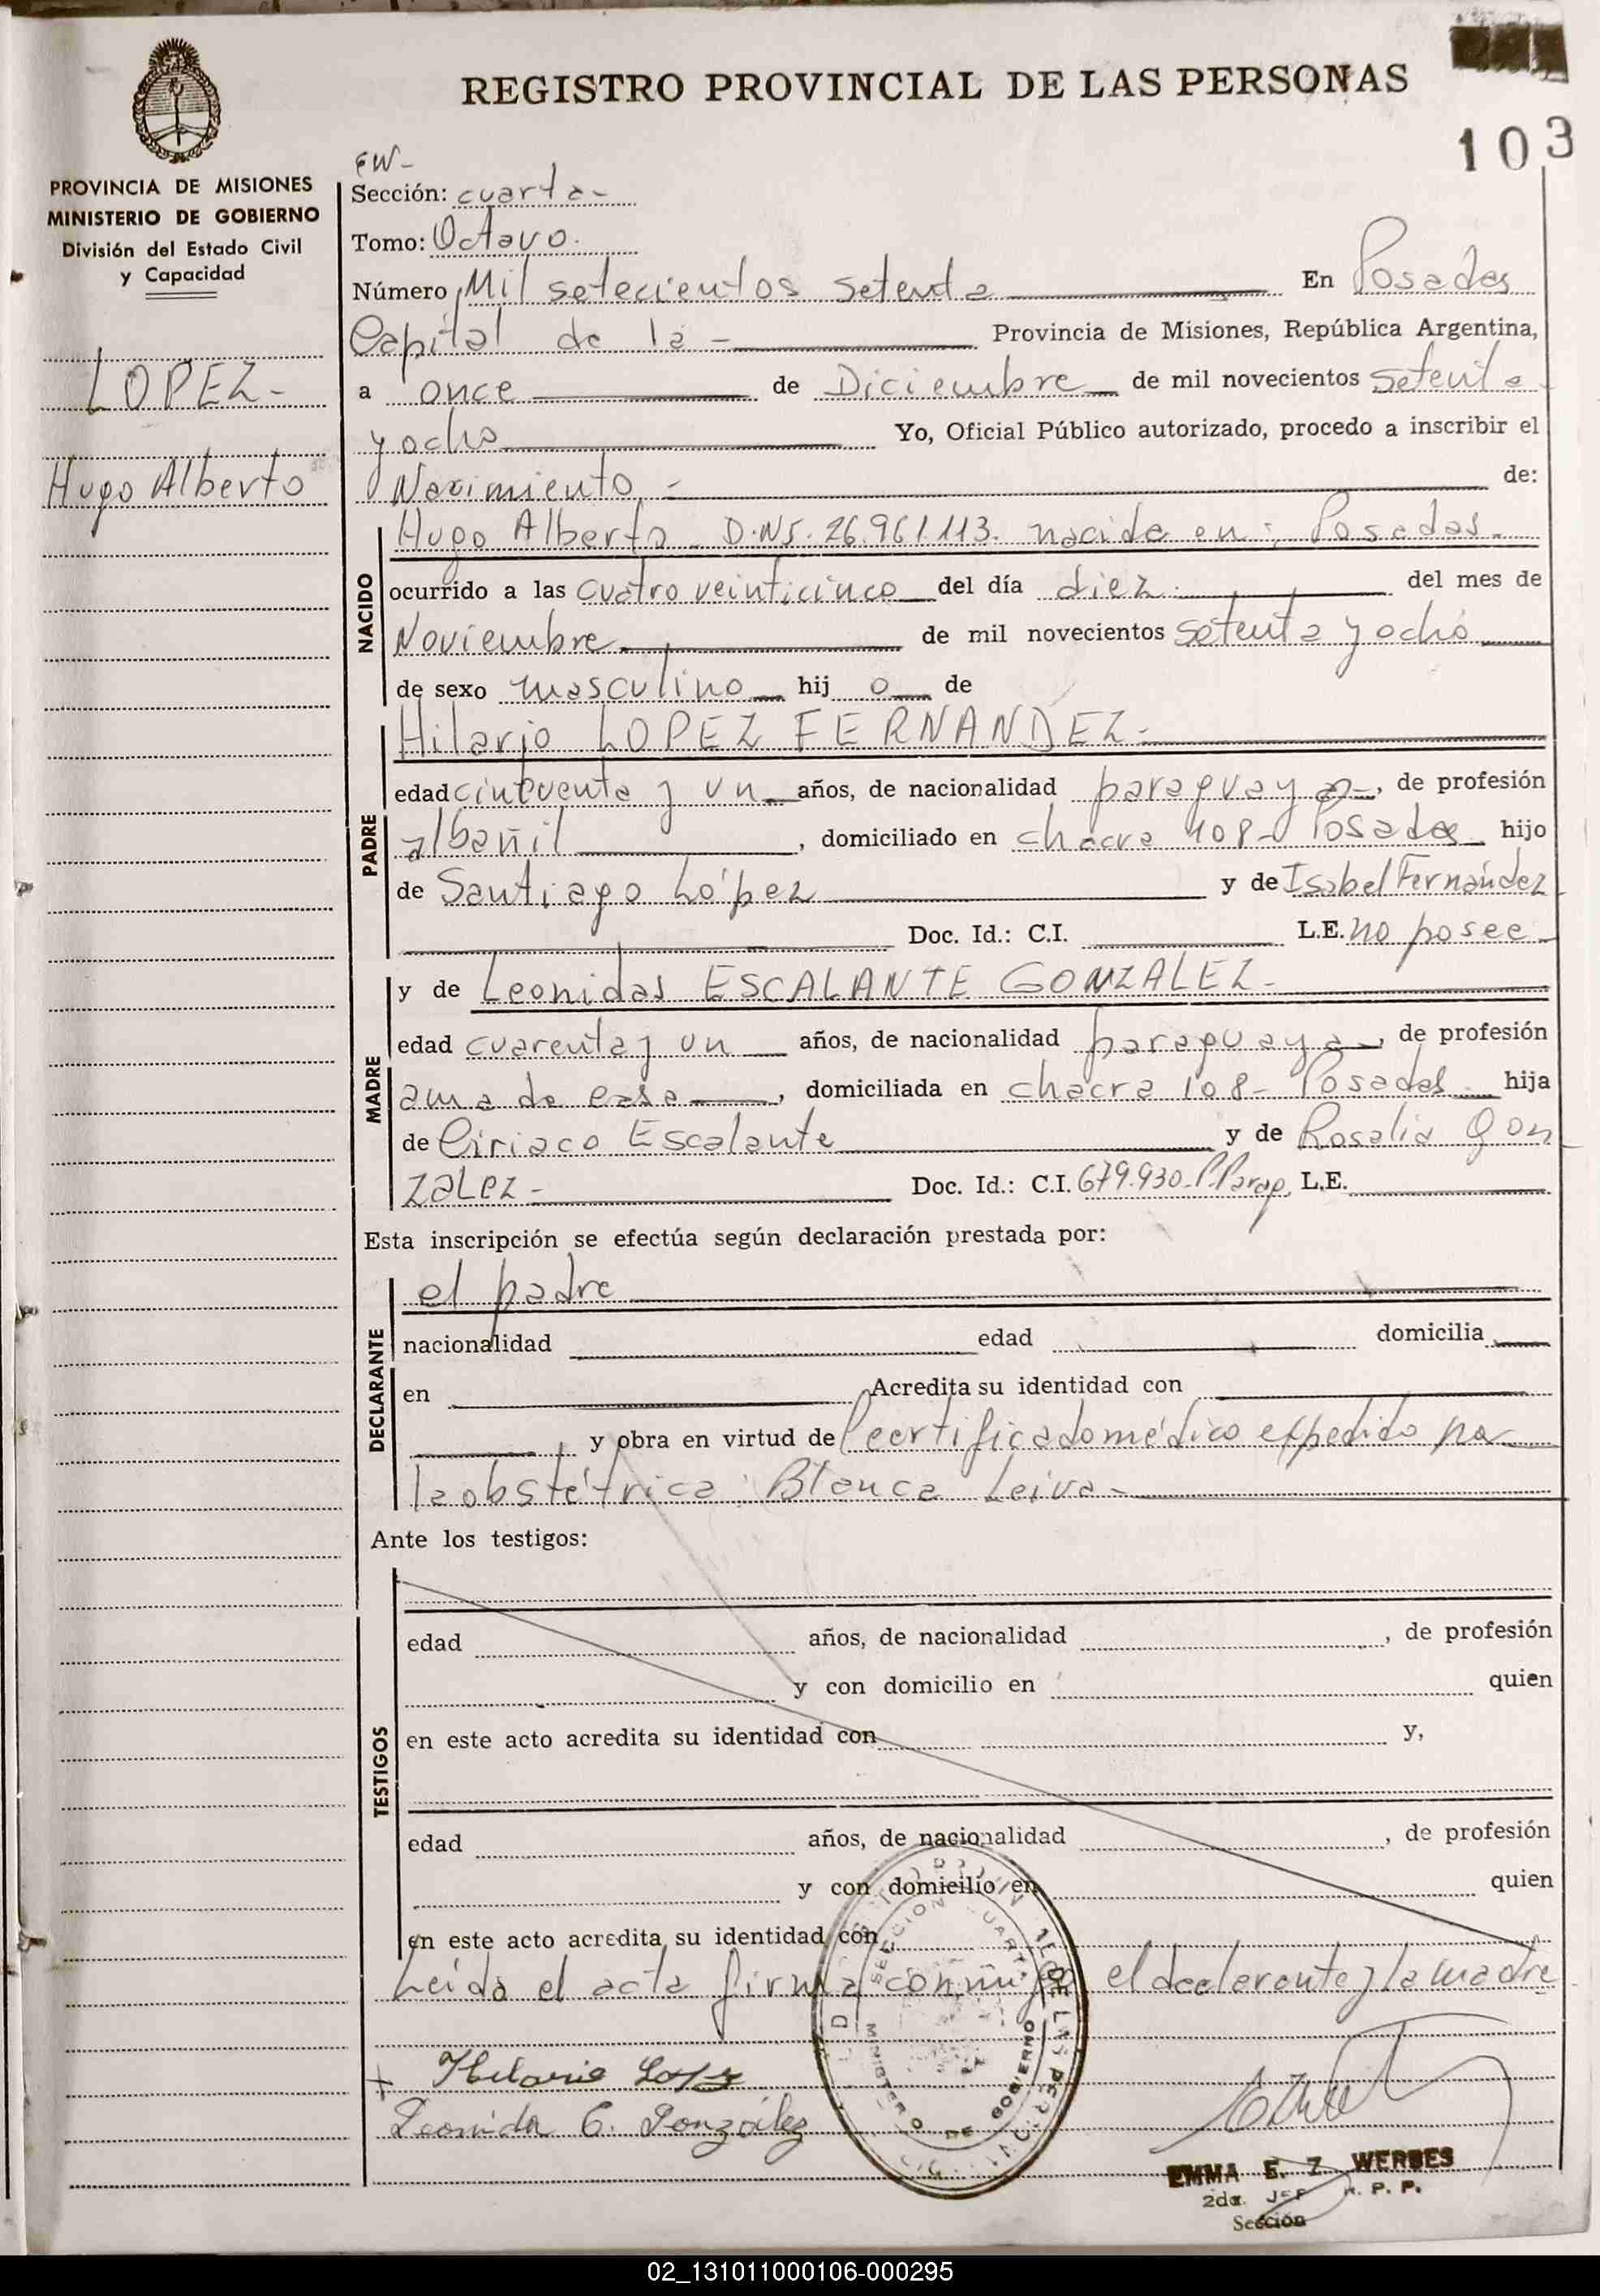 REGISTRO PROVINCIAL DE LAS PERSONAS
103
PROVINCIA DE MISIONES
MINISTERIO DE GOBIERNO
División del Estado Civil
y Capacidad
LOPEZ-
Hugo Alberto
EW-
Sección: cuarta-
Tomo: Octavo.
Número Mil setecientos setenta En Posadas
Capital de la - Provincia de Misiones, República Argentina,
a once de Diciembre de mil novecientos setenta
y ocho Yo, Oficial Público autorizado, procedo a inscribir el
Nacimiento.- de:
NACIDO
Hugo Alberto D.N.I. 26.961.113. nacido en: Posadas.
ocurrido a las cuatro veinticinco del día diez. del mes de
Noviembre de mil novecientos setenta y ocho
de sexo masculino hij o de
PADRE
Hilario LOPEZ FERNANDEZ.
edad cincuenta y un años, de nacionalidad paraguaya, de profesión
albañil, domiciliado en chacra 108- Posadas hijo
de Santiago López y de Isabel Fernández
Doc. Id.: C.I. L.E. no posee
MADRE
y de Leonidas ESCALANTE GONZALEZ.
edad cuarenta y un años, de nacionalidad paraguaya, de profesión
ama de casa, domiciliada en chacra 108- Posadas. hija
de Ciriaco Escalante y de Rosalia Gon
zalez- Doc. Id.: C.I. 679.930-P.Parag. L.E.
Esta inscripción se efectúa según declaración prestada por:
DECLARANTE
el padre
nacionalidad edad domicilia
en Acredita su identidad con
y obra en virtud del certificado médico expedido por
la obstétrica: Blanca Leiva-
Ante los testigos:
TESTIGOS
edad años, de nacionalidad , de profesión
y con domicilio en quien
en este acto acredita su identidad con y,
edad años, de nacionalidad , de profesión
y con domicilio en quien
en este acto acredita su identidad con
Leída el acta firma conmigo el declarante y la madre
SECCION CUARTA
MINISTERIO DE GOBIERNO
+ Hilario Lopez
Leonida E. González
EMMA E. Z. WERBES
2da. JEF R. P. P.
Sección
02_131011000106-000295